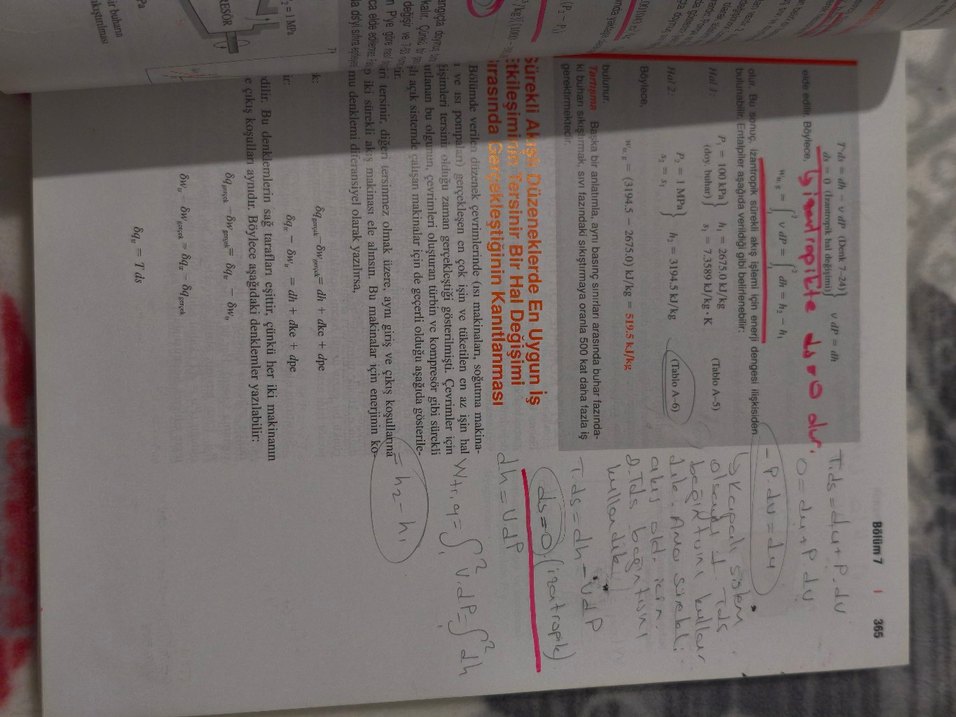 Bölüm 7 | 365
T ds = dh − v dP (Denk 7-24)
ds = 0 (İzantropik hal değişimi)
v dP = dh
elde edilir. Böylece,
İzantropikte ds=0 olur.
w tr, g = ∫₁² v dP = ∫₁² dh = h₂ − h₁
olur. Bu sonuç, izantropik sürekli akış işlemi için enerji dengesi ilişkisiden
bulunabilir. Entalpiler aşağıda verildiği gibi belirlenebilir:
Hal 1:
P₁ = 100 kPa
(doy. buhar)
h₁ = 2675.0 kJ/kg
s₁ = 7.3589 kJ/kg · K
(Tablo A–5)
Hal 2:
P₂ = 1 MPa
s₂ = s₁
h₂ = 3194.5 kJ/kg
(Tablo A–6)
Böylece,
w tr, g = (3194.5 − 2675.0) kJ/kg = 519.5 kJ/kg
bulunur.
Tartışma Başka bir anlatımla, aynı basınç sınırları arasında buhar fazında-
ki buharı sıkıştırmak sıvı fazındaki sıkıştırmaya oranla 500 kat daha fazla iş
gerektirmektedir.
Sürekli Akışlı Düzeneklerde En Uygun İş
Etkileşiminin Tersinir Bir Hal Değişimi
Sırasında Gerçekleştiğinin Kanıtlanması
Bölümde verilen düzenek çevrimlerinde (ısı makinaları, soğutma makina-
ı ve ısı pompaları) gerçekleşen en çok işin ve tüketilen en az işin hal
işimleri tersinir olduğu zaman gerçekleştiği gösterilmişti. Çevrimler için
utlanan bu olgunun, çevrimleri oluşturan türbin ve kompresör gibi sürekli
lı açık sistemde çalışan makinalar için de geçerli olduğu aşağıda gösterile-
ir.
iri tersinir, diğeri tersinmez olmak üzere, aynı giriş ve çıkış koşullarına
p iki sürekli akış makinası ele alınsın. Bu makinalar için enerjinin ko-
mu denklemi diferansiyel olarak yazılırsa,
δq gerçek − δw gerçek = dh + dke + dpe
k:
δq tr − δw tr = dh + dke + dpe
ir:
δq gerçek − δw gerçek = δq tr − δw tr
edilir. Bu denklemlerin sağ tarafları eşittir, çünkü her iki makinanın
e çıkış koşulları aynıdır. Böylece aşağıdaki denklemler yazılabilir:
δw tr − δw gerçek = δq tr − δq gerçek
δq tr = T ds
T.ds = du + P.dv
0 = du + P.dv
−P.dv = du
↳ Kapalı sistem
olsaydı 1. Tds
bağıntısını kullanır
dık. Ama sürekli
akış old. için
2. Tds bağıntısını
kullandık
T.ds = dh − V.dP
ds=0 (izantropik)
dh = V.dP
Wtr,g = ∫₁² V.dP = ∫₁² dh
= h₂ − h₁
P₂ = 1 MPa